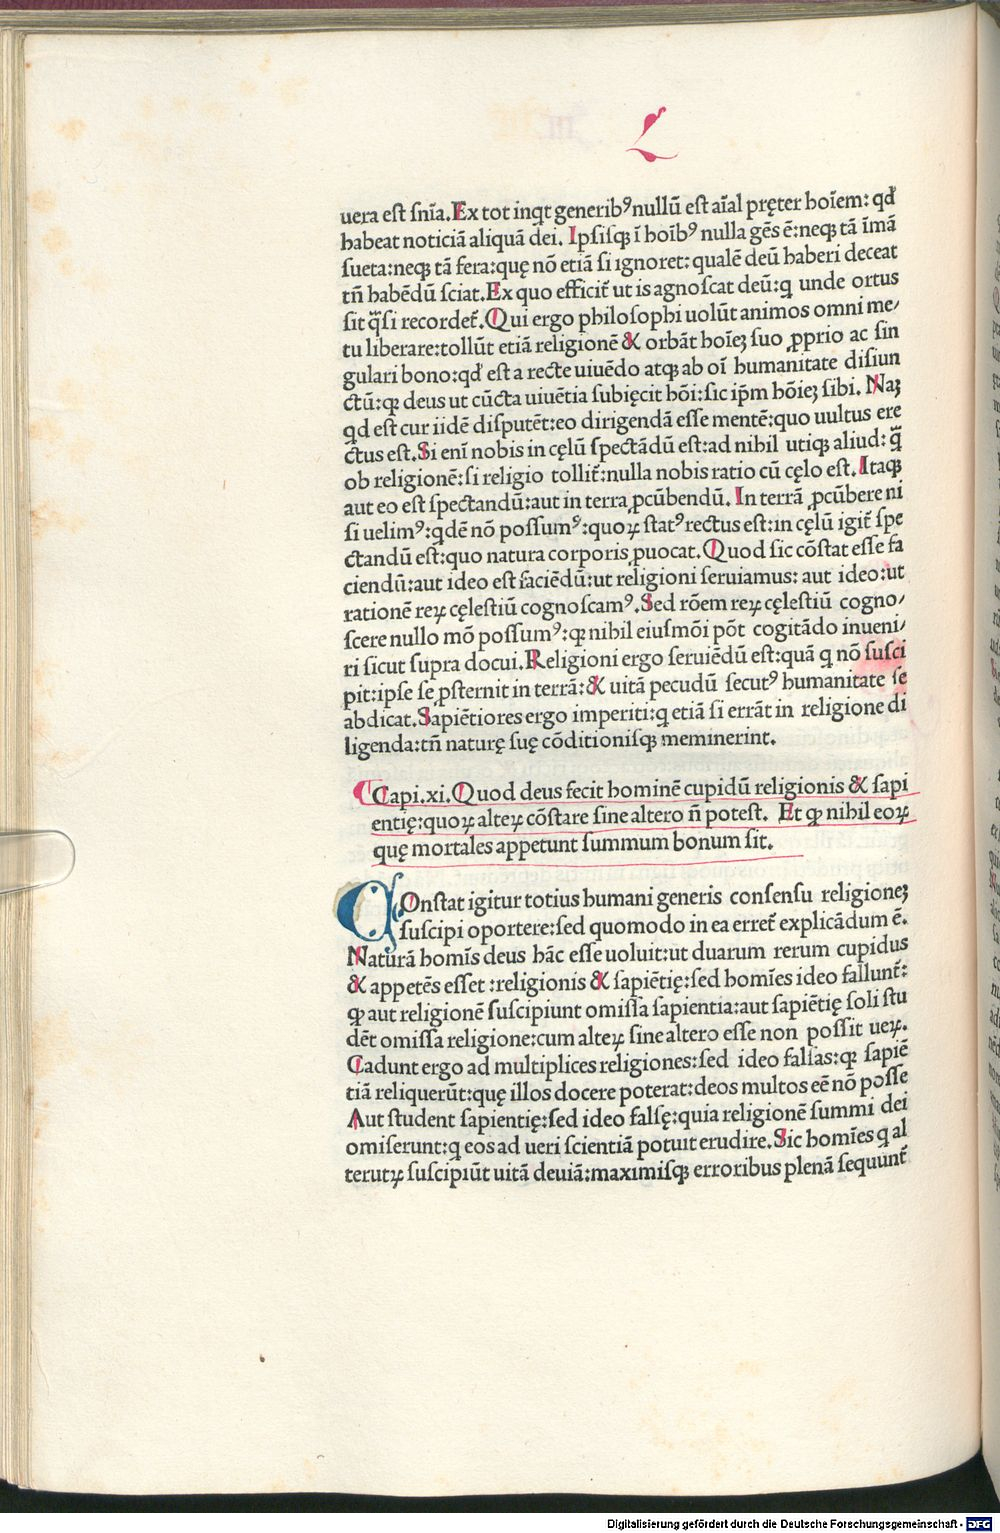 L
uera est snīa.Ex tot inqt generibꝰ nullū est aīal pręter hoīem: qď
habeat noticiā aliquā dei. Ipsisqꝫ ī hoībꝰ nulla gēs ē:neqꝫ tā īmā
sueta:neqꝫ tā fera:quę nō etiā si ignoret: qualē deū haberi deceat
tn̄ habēdū sciat.Ex quo efficit̃ ut is agnoscat deū:q unde ortus
sit q̃si recordet̃.Qui ergo philosophi uolūt animos omni me/
tu liberare:tollūt etiā religionē & orbāt hoīeꝫ suo ꝓprio ac sin
gulari bono:qď est a recte uiuēdo atqꝫ ab oī humanitate disiun
ctū:qꝫ deus ut cūcta uiuētia subięcit hōi:sic ip̄m hōieꝫ sibi. Naꝫ
qd est cur iidē disputēt:eo dirigendā esse mentē:quo uultus ere
ctus est.Si enī nobis in cęlū spectādū est:ad nihil utiqꝫ aliud: q̃
ob religionē:si religio tollit̃:nulla nobis ratio cū cęlo est.Itaqꝫ
aut eo est spectandū:aut in terra ꝓcūbendū. In terrā ꝓcūbere ni
si uelimꝰ:qdē nō possumꝰ:quoꝝ statꝰ rectus est:in cęlū igit̃ spe
ctandū est:quo natura corporis ꝓuocat.Quod sic cōstat esse fa
ciendū:aut ideo est faciēdū:ut religioni seruiamus: aut ideo:ut
rationē reꝝ cęlestiū cognoscamꝰ.Sed rōem reꝝ cęlestiū cogno/
scere nullo mō possumꝰ:qꝫ nihil eiusmōi pōt cogitādo inueni/
ri sicut supra docui.Religioni ergo seruiēdū est:quā q nō susci
pit:ipse se ꝓsternit in terrā:& uitā pecudū secutꝰ humanitate se
abdicat.Sapiētiores ergo imperiti:q etiā si errāt in religione di
ligenda:tn̄ naturę suę cōditionisqꝫ meminerint.
Capi.xi.Quod deus fecit hominē cupidū religionis & sapi
entię:quoꝝ alteꝝ cōstare sine altero n̄ potest. Et qꝫ nihil eoꝝ
quę mortales appetunt summum bonum sit.
COnstat igitur totius humani generis consensu religioneꝫ
suscipi oportere:sed quomodo in ea erret̃ explicādum ē.
Naturā homīs deus hāc esse uoluit:ut duarum rerum cupidus
& appetēs esset :religionis & sapiētię:sed homīes ideo fallunt̃:
qꝫ aut religionē suscipiunt omissa sapientia:aut sapiētię soli stu
dēt omissa religione:cum alteꝝ sine altero esse non possit ueꝝ.
Cadunt ergo ad multiplices religiones:sed ideo falsas:qꝫ sapiē
tiā reliquerūt:quę illos docere poterat:deos multos eē nō posse
Aut student sapientię:sed ideo falsę:quia religionē summi dei
omiserunt:q eos ad ueri scientiā potuit erudire.Sic homīes q al
terutꝝ suscipiūt uitā deuiā:maximisqꝫ erroribus plenā sequunt̃
Digitalisierung gefördert durch die Deutsche Forschungsgemeinschaft - DFG